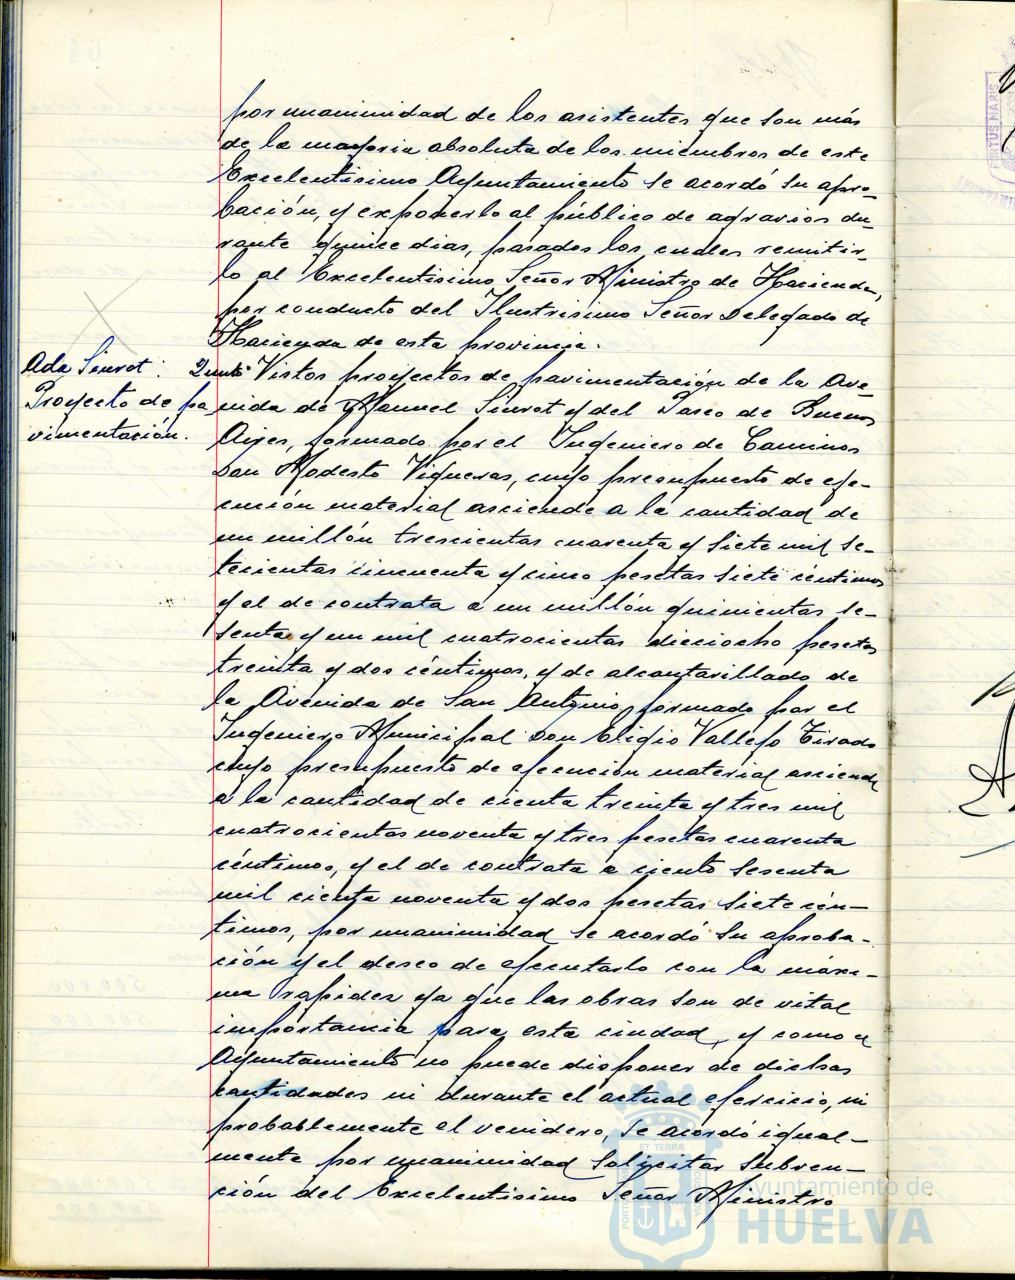 por unanimidad de los asistentes que son más
de la mayoria absoluta de los miembros de este
Excelentisimo Ayuntamiento se acordó su apro-
bación, y exponerlo al público de agravios du-
rante quince dias, pasados los cuales remitir-
lo al Excelentisimo Señor Ministro de Hacienda,
por conducto del Ilustrisimo Señor Delegado de
Hacienda de esta provincia.
Ada Siurot:
Proyecto de pa
vimentación.
Quinto Vistos proyectos de pavimentación de la Ave-
nida de Manuel Siurot y del Paseo de Buenos
Aires, formado por el Ingeniero de Caminos
Don Modesto Vigueras, cuyo presupuesto de eje-
cución material asciende a la cantidad de
un millón trescientas cuarenta y siete mil se-
tecientas cincuenta y cinco pesetas siete céntimos
y el de contrata a un millón quinientas se-
senta y un mil cuatrocientas dieciocho pesetas
treinta y dos céntimos, y de alcantarillado de
la Avenida de San Antonio, formado por el
Ingeniero Municipal Don Eligio Vallejo Tirado
cuyo presupuesto de ejecución material asciende
a la cantidad de cienta treinta y tres mil
cuatrocientas noventa y tres pesetas cuarenta
céntimos, y el de contrata a ciento sesenta
mil cienta noventa y dos pesetas siete cén-
timos, por unanimidad se acordó su aproba-
ción y el deseo de ejecutarlo con la máxi-
ma rapidez ya que las obras son de vital
importancia para esta ciudad, y como el
Ayuntamiento no puede disponer de dichas
cantidades ni durante el actual ejercicio, ni
probablemente el venidero, se acordó igual-
mente por unanimidad solicitar subven-
ción del Excelentisimo Señor Ministro
Ayuntamiento de
HUELVA
PORTUS MARIS
ET TERRÆ